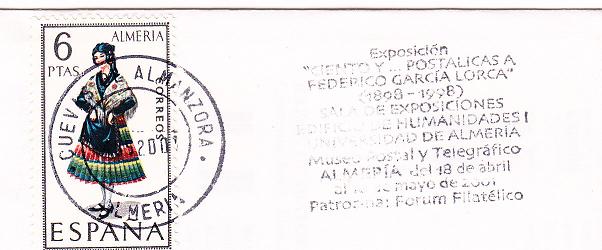 6
PTAS
ALMERIA
CORREOS
ESPAÑA
CUEVAS ALMANZORA
ALMERIA
Exposición
"CIENTO Y ... POSTALICAS A
FEDERICO GARCÍA LORCA"
(1898-1998)
SALA DE EXPOSICIONES
EDIFICIO DE HUMANIDADES I
UNIVERSIDAD DE ALMERÍA
Museo Postal y Telegráfico
ALMERÍA del 18 de abril
mayo de 2001
Patrocina: Forum Filatélico